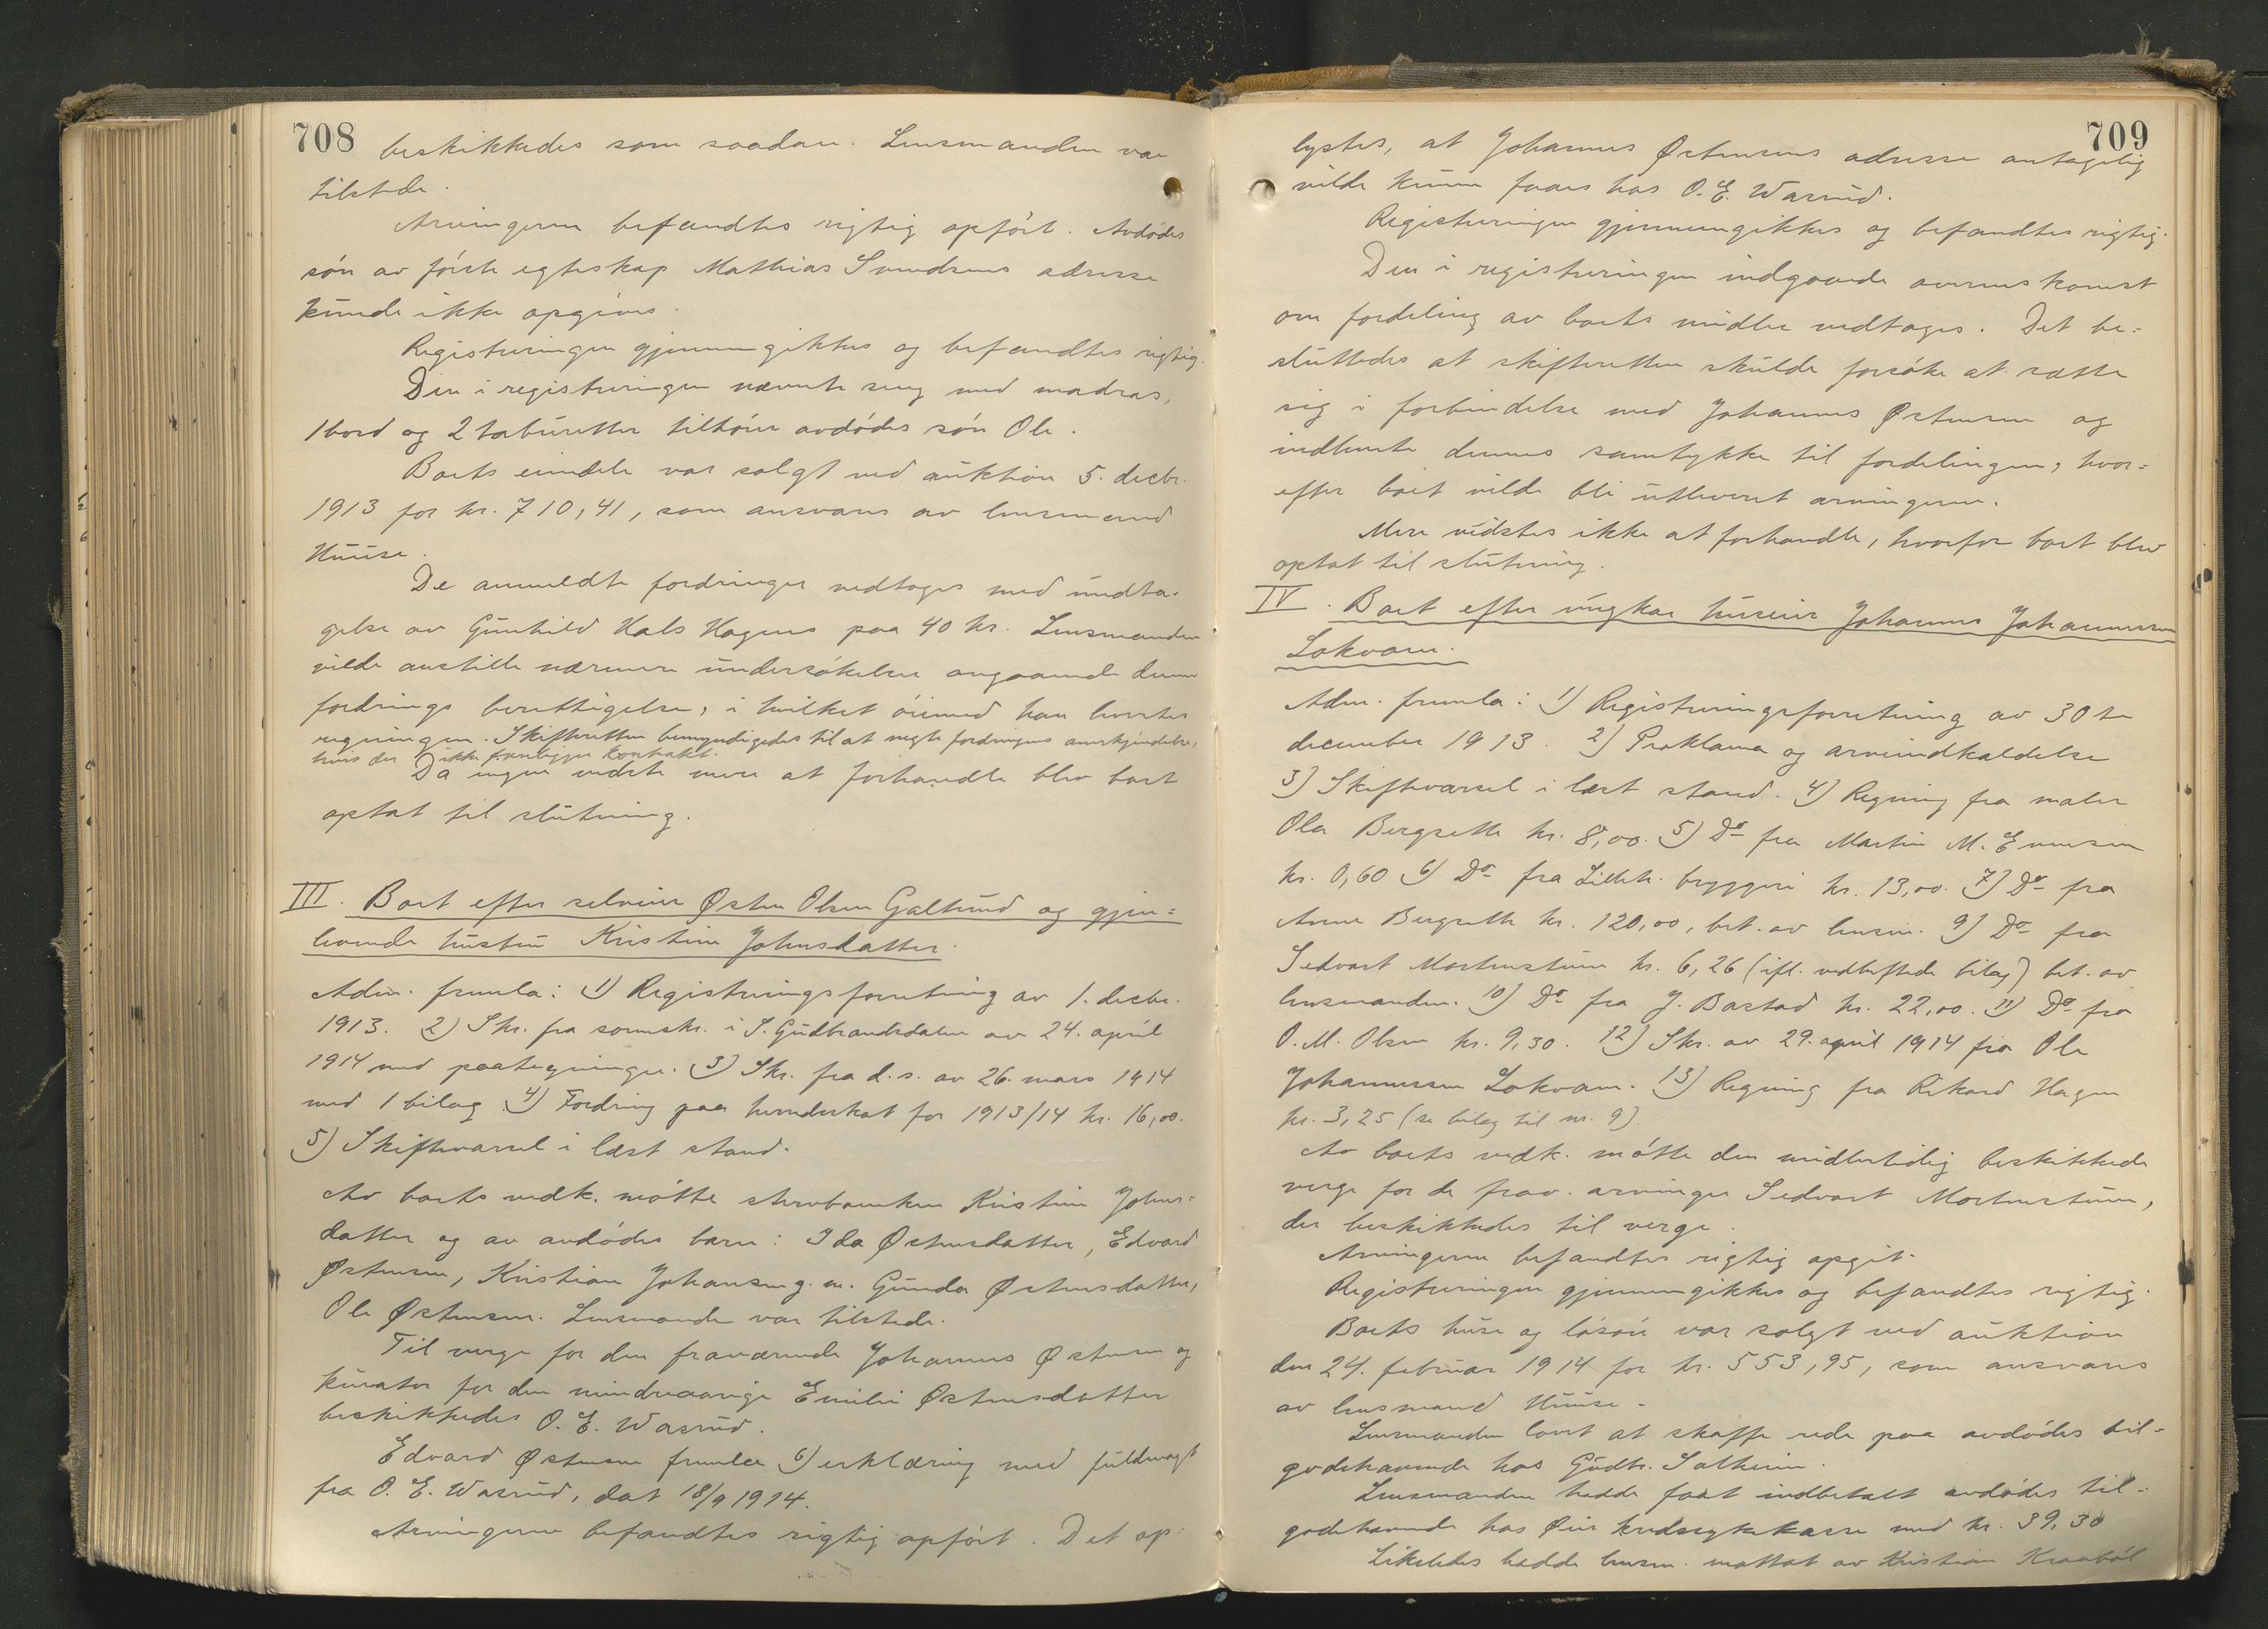 708
beskikkedes som saadan. Lensmanden var
tilstede.
Arvingerne befandtes rigtig opført. Avdødes
søn av første egteskap Mathias Svendsens adresse
kunde ikke opgives.
Registreringen gjennemgikkes og befandtes rigtig.
Den i registreringen nævnte seng med madras,
1 bord og 2 taburetter tilhører avdødes søn Ole.
Boets eiendele var solgt ved auktion 5. decbr.
1913 for kr. 710,41, som ansvares av lensmand
Huuse.
De anmeldte fordringer vedtoges med undta-
gelse av Gunhild Hals Hagens paa 40 kr. Lensmanden
vilde anstille nærmere undersøkelser angaaende denne
fordrings berettigelse, i hvilket øiemed han leverte
regningen. Skifteretten bemyndigedes til at negte fordringens anerkjendelse,
hvis der ikke foreligger kontrakt.
Da ingen vidste mere at forhandle blev boet
optat til slutning.
III. Boet efter selveier Østen Olsen Galtrud og gjen=
levende hustru Kristine Johnsdatter.
Adm. fremla: 1) Registreringsforretning av 1. decbr.
1913. 2) Skr. fra sorenskr. i S. Gudbrandsdalen av 24. april
1914 med paategninger. 3) Skr. fra d. s. av 26. mars 1914
med 1 bilag. 4) Fordring paa herredsskat for 1913/14 kr. 16,00.
5) Skiftevarsel i læst stand.
Av boets vedk. møtte sterbeenken Kristine Johns=
datter og av avdødes barn: Ida Østensdatter, Edvard
Østensen, Kristian Johansen g. m. Gunda Østensdatter,
Ole Østensen. Lensmanden var tilstede.
Til verge for den fraværende Johannes Østensen og
kurator for den mindreaarige Emilie Østensdatter
beskikkedes O. E. Wasrud.
Edvard Østensen fremla 6) erklæring med fuldmagt
fra O. E. Wasrud, dat 18/9 1914.
Arvingerne befandtes rigtig opført. Det op=
709
lystes, at Johannes Østensens adresse antagelig
vilde kunne faaes hos O. E. Wasrud.
Registreringen gjennemgikkes og befandtes rigtig.
Den i registreringen indgaaede overenskomst
om fordeling av boets midler vedtoges. Det be=
sluttedes at skifteretten skulde forsøke at sætte
sig i forbindelse med Johannes Østensen og
indhente dennes samtykke til fordelingen, hvor=
efter boet vilde bli utleveret arvingerne.
Mere vidstes ikke at forhandle, hvorfor boet blev
optat til slutning.
IV. Boet efter ungkar huseier Johannes Johannessen
Lokvam.
Adm. fremla: 1) Registreringsforretning av 30te
december 1913. 2) Proklama og arveindkaldelse
3) Skiftevarsel i læst stand. 4) Regning fra maler
Ola Bergseth kr. 8,00. 5) Do fra Martin M. Evensen
kr. 0,60 6) Do fra Lilleh. bryggeri kr. 13,00. 7) Do fra
Anne Bergseth kr. 120,00, bet. av lensm. 9) Do fra
Sedvart Mortenstuen kr. 6,26 (ifl. vedheftede bilag) bet. av
lensmanden. 10) Do fra J. Bastad kr. 22,00. 11) Do fra
O. M. Olsen kr. 9,30. 12) Skr. av 29. april 1914 fra Ole
Johannessen Lokvam. 13) Regning fra Rikard Hagen
kr. 3,25 (se bilag til nr. 9).
Av boets vedk. møtte den midlertidig beskikkede
verge for de frav. arvinger Sedvart Mortenstuen,
der beskikkedes til verge.
Arvingerne befandtes rigtig opgit.
Registreringen gjennemgikkes og befandtes rigtig.
Boets huse og løsøre var solgt ved auktion
den 24. februar 1914 for kr. 553,95, som ansvares
av lensmand Huuse.
Lensmanden lovet at skaffe rede paa avdødes til=
godehavende hos Gudbr. Satheim.
Lensmanden hadde faat indbetalt avdødes til=
godehavende hos Øier kredssykekasse med kr. 39,30
Likeledes hadde lensm. mottat av Kristian Kraabøl